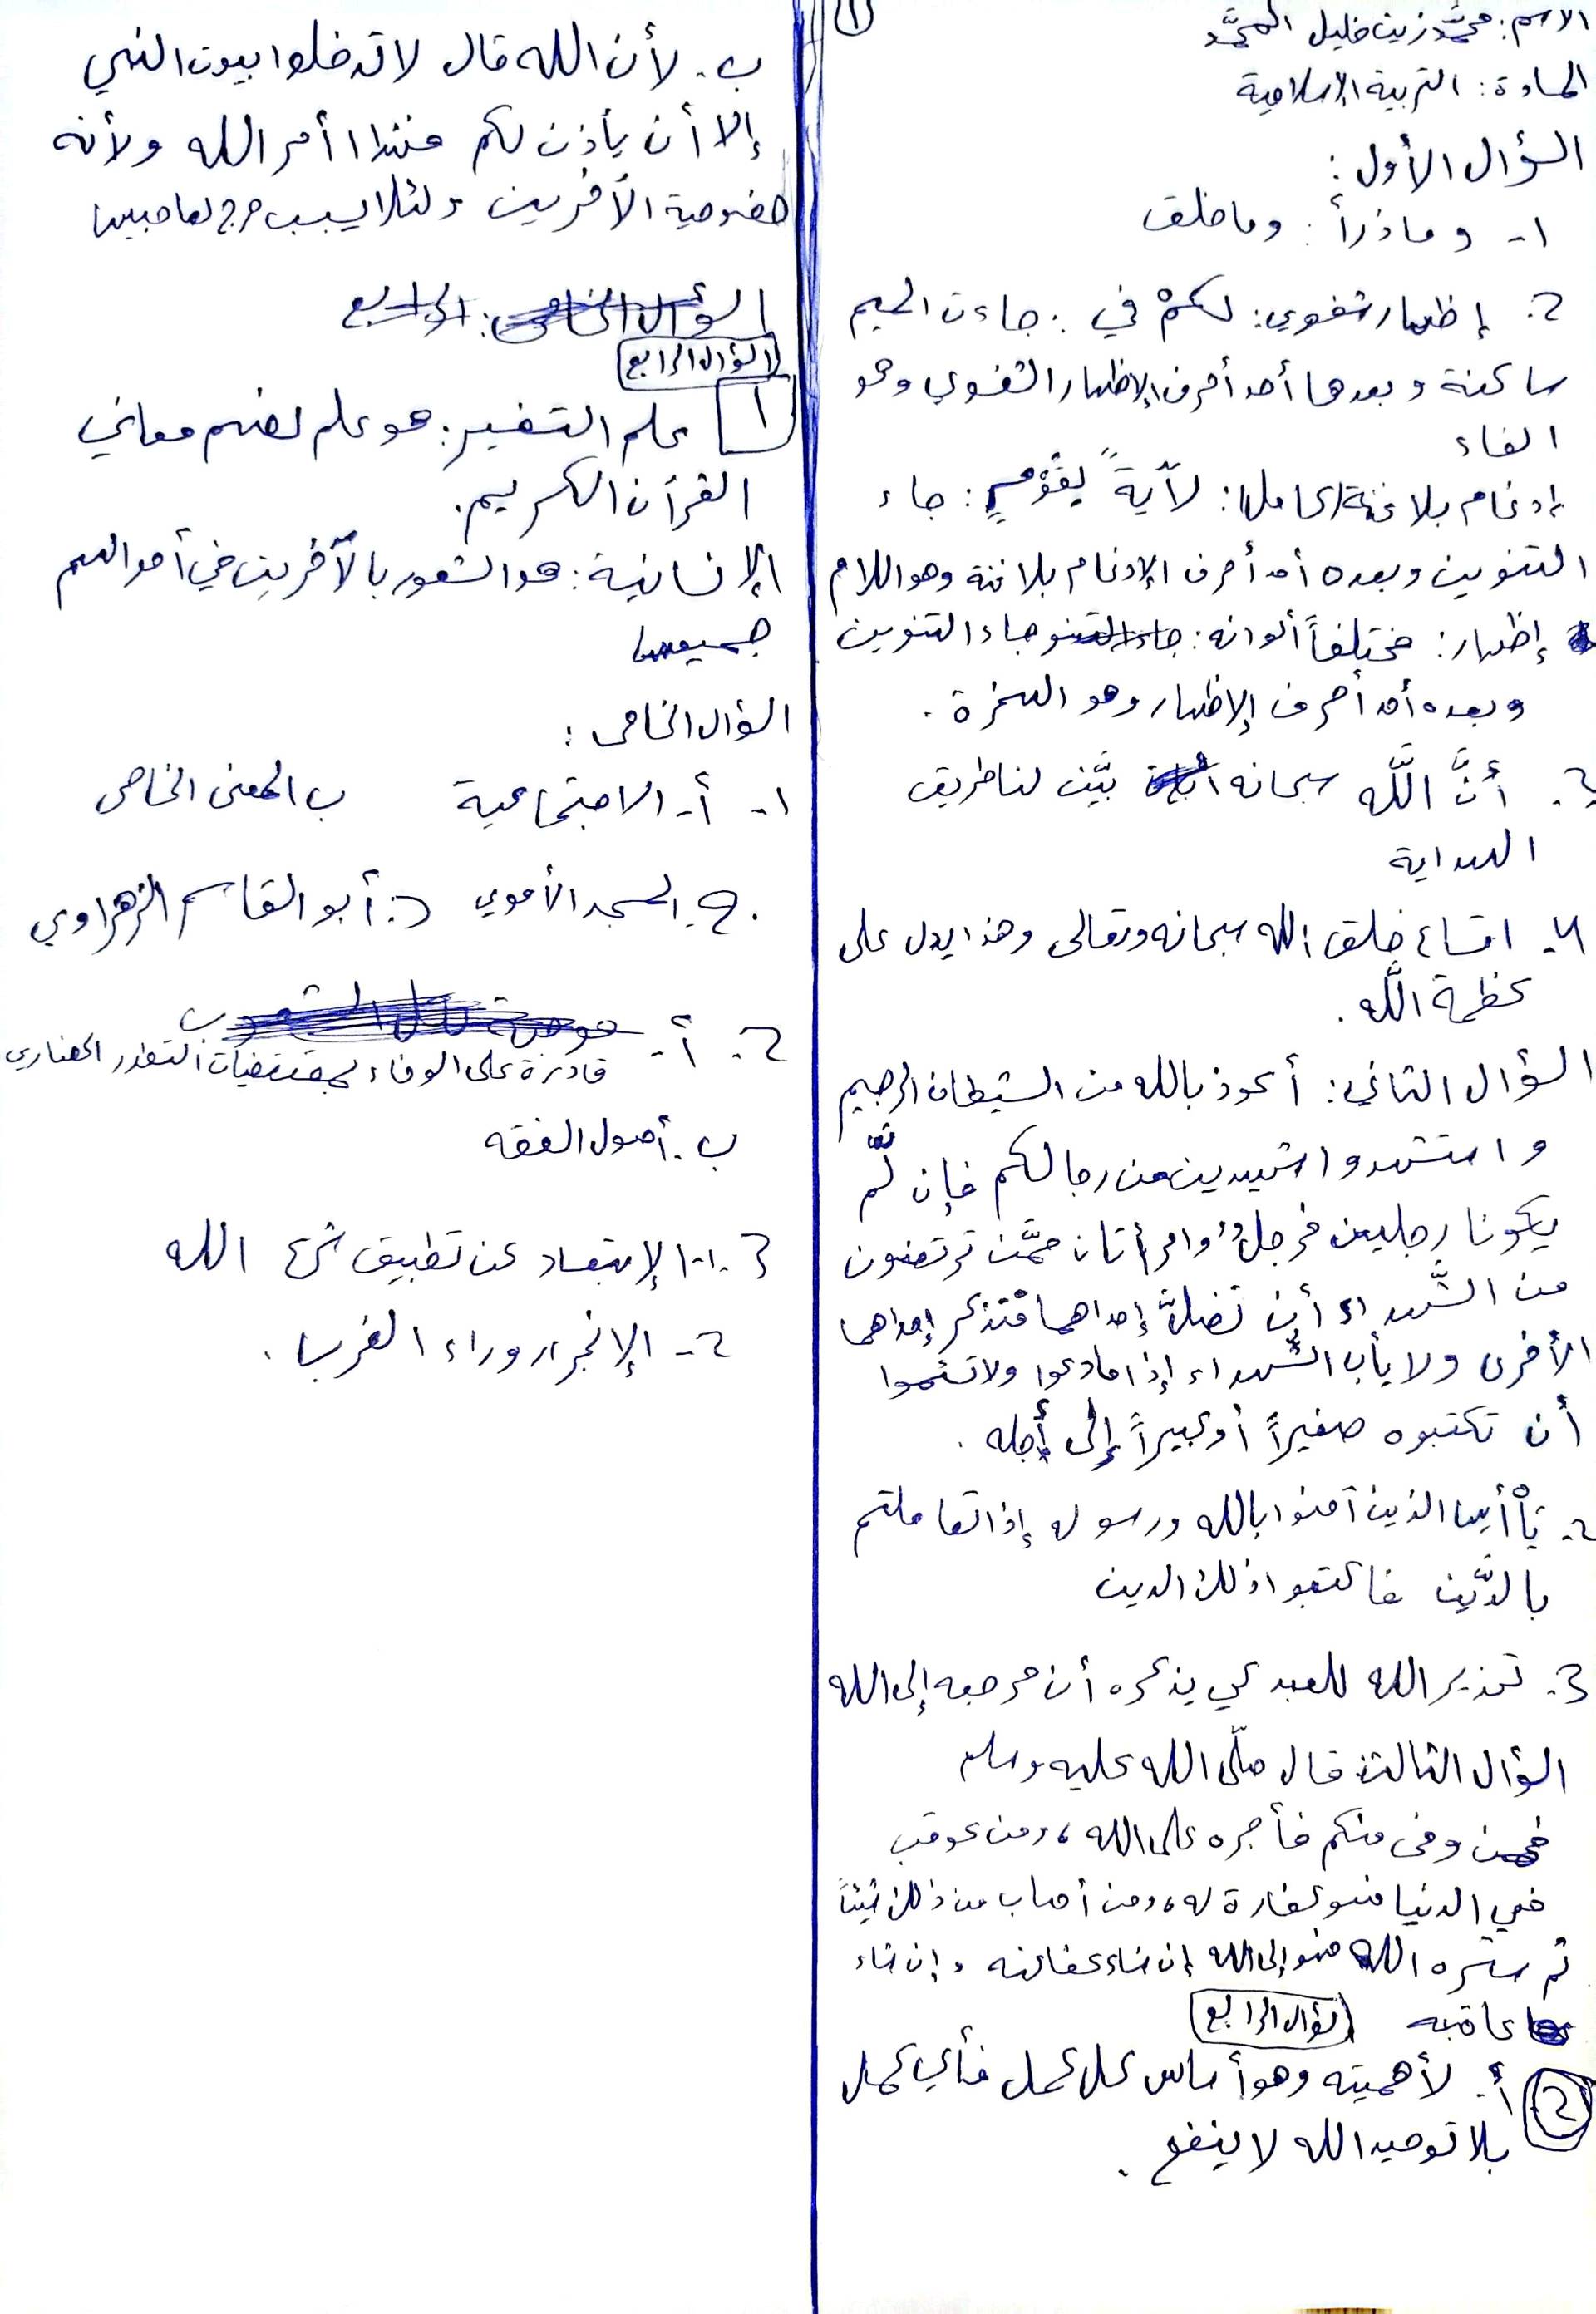 ١
الاسم: محمَّد زين خليل المحمَّد
المادة: التربية الإسلامية
السؤال الأول:
١- وماذرأ: وما خلق
٢. إظهار شفوي: لكمْ في: جاءت الميم
ساكنة وبعدها أحد أحرف الإظهار الشفوي وهو
الفاء
إدغام بلا غنة كامل: لآيةً لِقَوْمٍ: جاء
التنوين وبعده أحد أحرف الإدغام بلا غنة وهو اللام
إظهار: مختلفاً ألوانه: جاء التنوين
وبعده أحد أحرف الإظهار وهو الهمزة.
٣. أنَّ اللَّه سبحانه بيَّن لنا طريق
الهداية
٤. اتساع خلق الله سبحانه وتعالى وهذا يدل على
عظمة اللَّه.
السؤال الثاني: أعوذ بالله من الشيطان الرجيم
واستشهدوا شهيدين من رجالكم فإن لَّم
يكونا رجلين فرجلٌ وامرأتان ممَّن ترتضون
من الشُّهداء أن تضلَّ إحداهما فتذكر إحداهما
الأخرى ولا يأب الشُّهداء إذا ما دعوا ولا تسئموا
أن تكتبوه صغيراً أو كبيراً إلى أجله.
٢. يأأيها الذين آمنوا بالله ورسوله إذا تعاملتم
بالدَّين فاكتبوا ذلك الدين
3. تحذير الله للعبد كي يذكره أن مرجعه إلى الله
السؤال الثالث: قال صلّى الله عليه وسلم
فمن وفى منكم فأجره على الله، ومن عوقب
في الدنيا فهو كفارة له، ومن أصاب من ذلك شيئاً
ثم ستره الله فهو إلى الله إن شاء عفا عنه وإن شاء
عاقبه السؤال الرابع
2 أ. لأهميته وهو أساس كل عمل فأي عمل
بلا توحيد الله لا ينفع.
ب. لأن الله قال لا تدخلوا بيوت النبي
إلا أن يأذن لكم فهذا أمر الله ولأنه
خصوصية الآخرين ولئلا يسبب حرج لصاحبها
السؤال الرابع
١ علم التفسير: هو علم لفهم معاني
القرآن الكريم.
الإنسانية: هو الشعور بالآخرين في أحوالهم
جميعها
السؤال الخامس:
١- أ- الاجتماعية ب المعنى الخاص
ج. المسجد الأموي د: أبو القاسم الزهراوي
٢. أ-
قادرة على الوفاء بمقتضيات التطور الحضاري
ب. أصول الفقه
3. ١. الإبتعاد عن تطبيق شرع الله
٢- الإنجرار وراء الغرب.